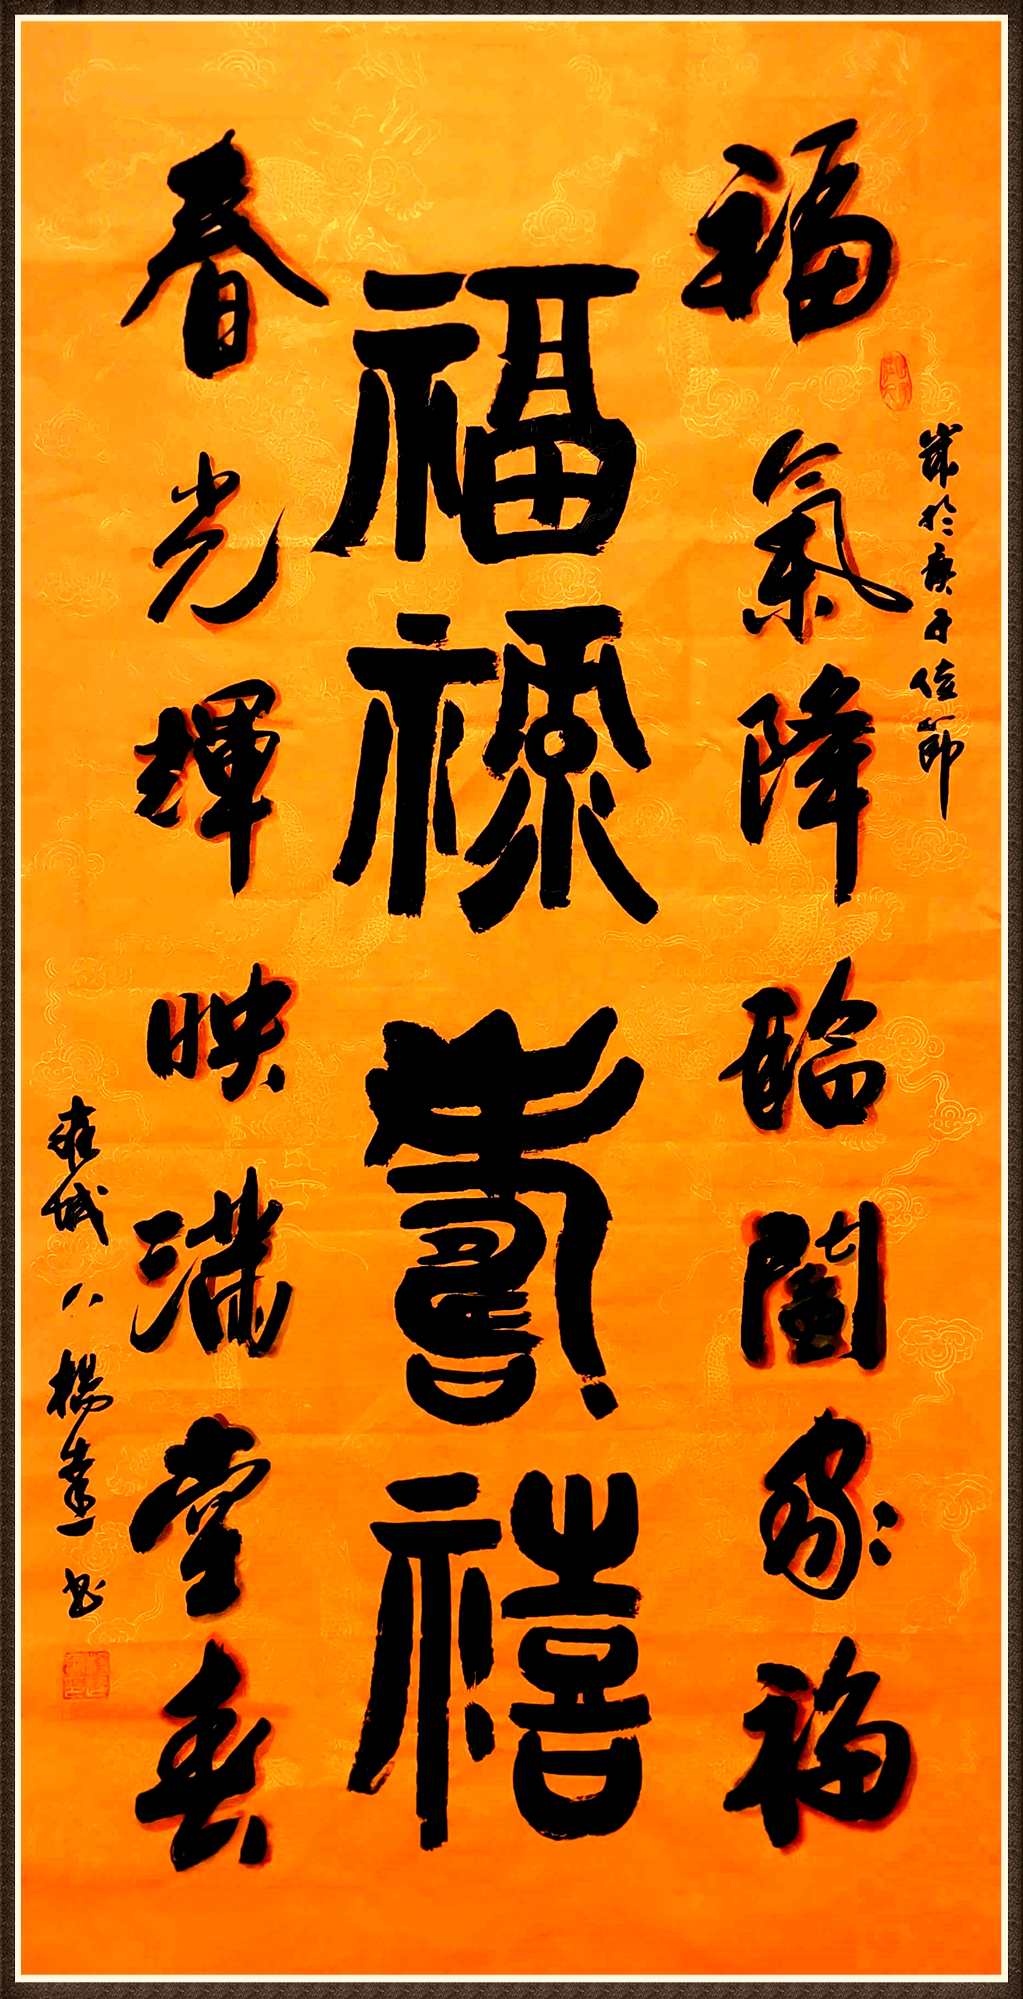 歲於庚子佳節
福氣降臨闔家福
福祿壽禧
春光輝映滿堂春
雍城人楊一書